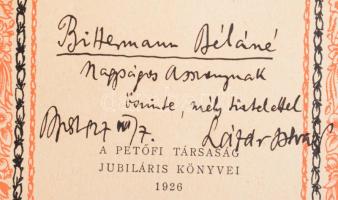 Bittermann Béláné
Nagyságos Asszonynak
őszinte, mély tisztelettel
Bpest 927 VII/7. Lázár István
A PETŐFI TÁRSASÁG
JUBILÁRIS KÖNYVEI
1926